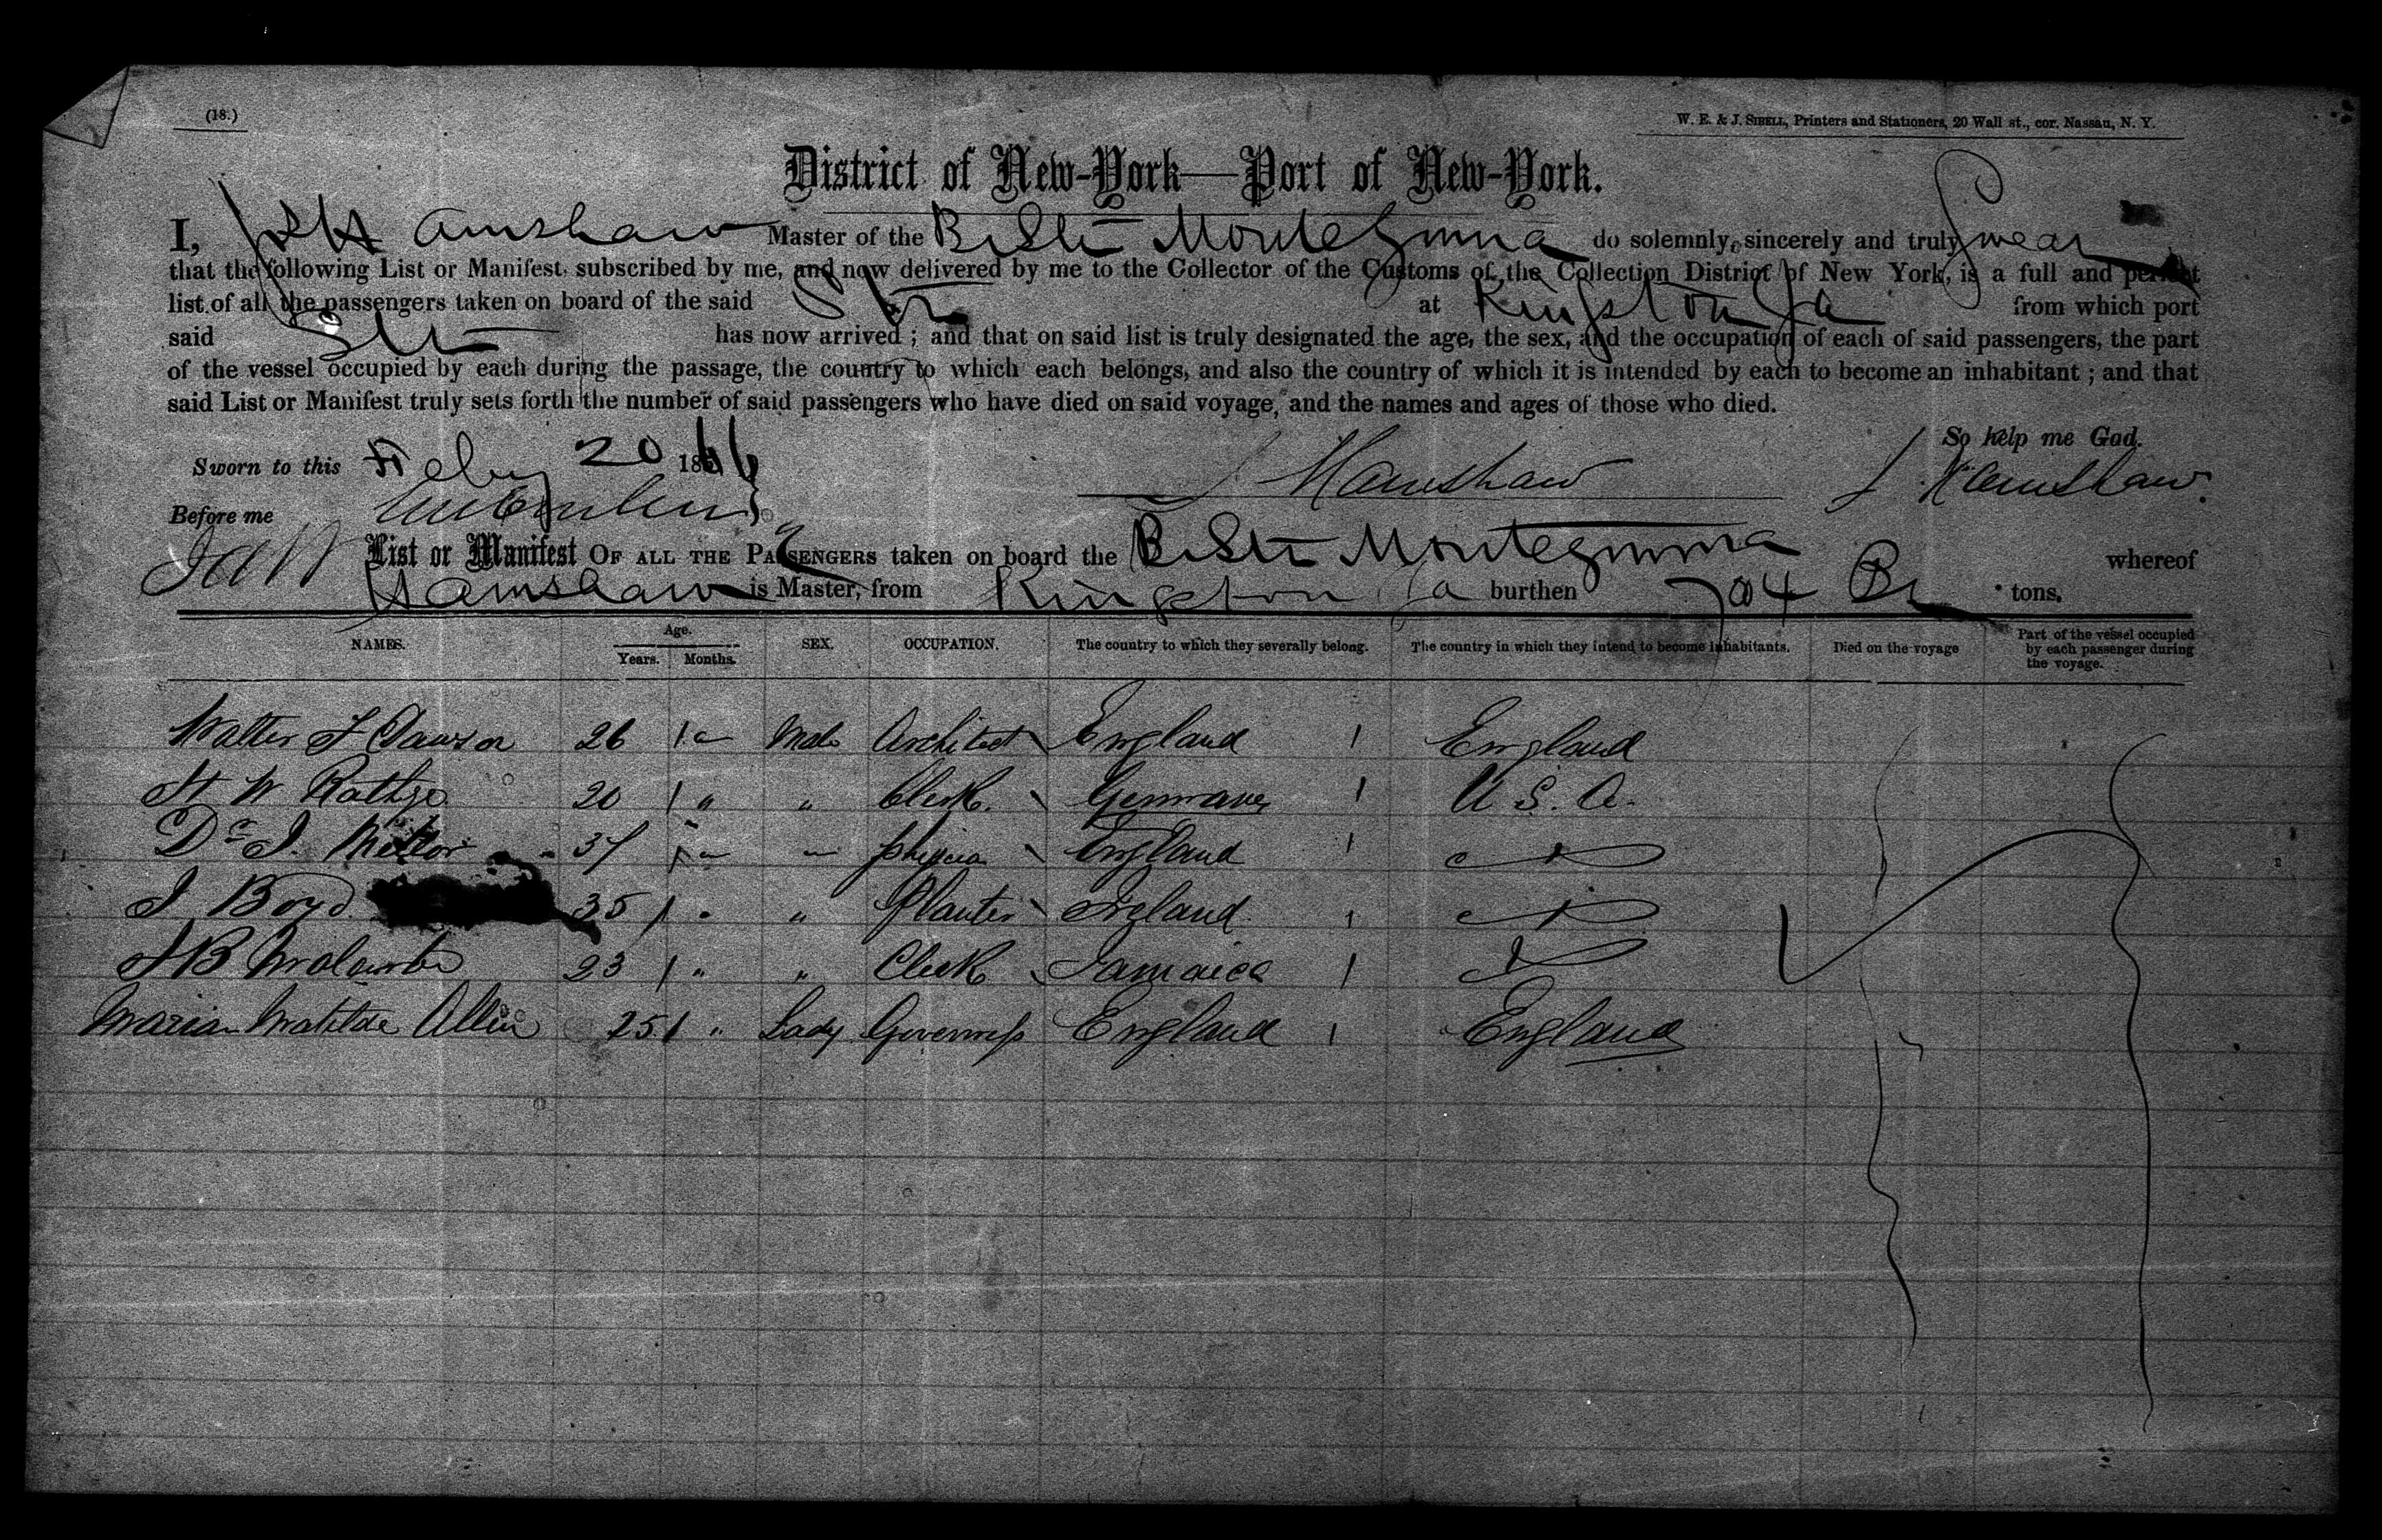 (18.)
W. E. & J. SIBELL, Printers and Stationers, 20 Wall st., cor. Nassau, N. Y.
District of New-York—Port of New-York.
I, Hamshaw Master of the Br Str Montezuma do solemnly, sincerely and truly swear
that the following List or Manifest, subscribed by me, and now delivered by me to the Collector of the Customs of the Collection District of New York, is a full and perfect
list of all the passengers taken on board of the said Str at Kingston Ja from which port
said Str has now arrived ; and that on said list is truly designated the age, the sex, and the occupation of each of said passengers, the part
of the vessel occupied by each during the passage, the country to which each belongs, and also the country of which it is intended by each to become an inhabitant ; and that
said List or Manifest truly sets forth the number of said passengers who have died on said voyage, and the names and ages of those who died.
So help me God.
Sworn to this Feby 20 1866
J Hamshaw J Hamshaw
Before me
List or Manifest OF ALL THE PASSENGERS taken on board the Br Str Montezuma whereof
Hamshaw is Master, from Kingston Ja burthen 704 Br tons.
NAMES. Age. Years. Months. SEX. OCCUPATION. The country to which they severally belong. The country in which they intend to become inhabitants. Died on the voyage Part of the vessel occupied by each passenger during the voyage.
Walter F Dawson 26 Male Architect England England
H W Rathge 20 " " Clerk Germany U S. A.
Dr J. 37 England
J Boyd 35 " " Planter Ireland
23 " " Clerk Jamaica
Marian Matilda Allen 25 " Lady Governess England England